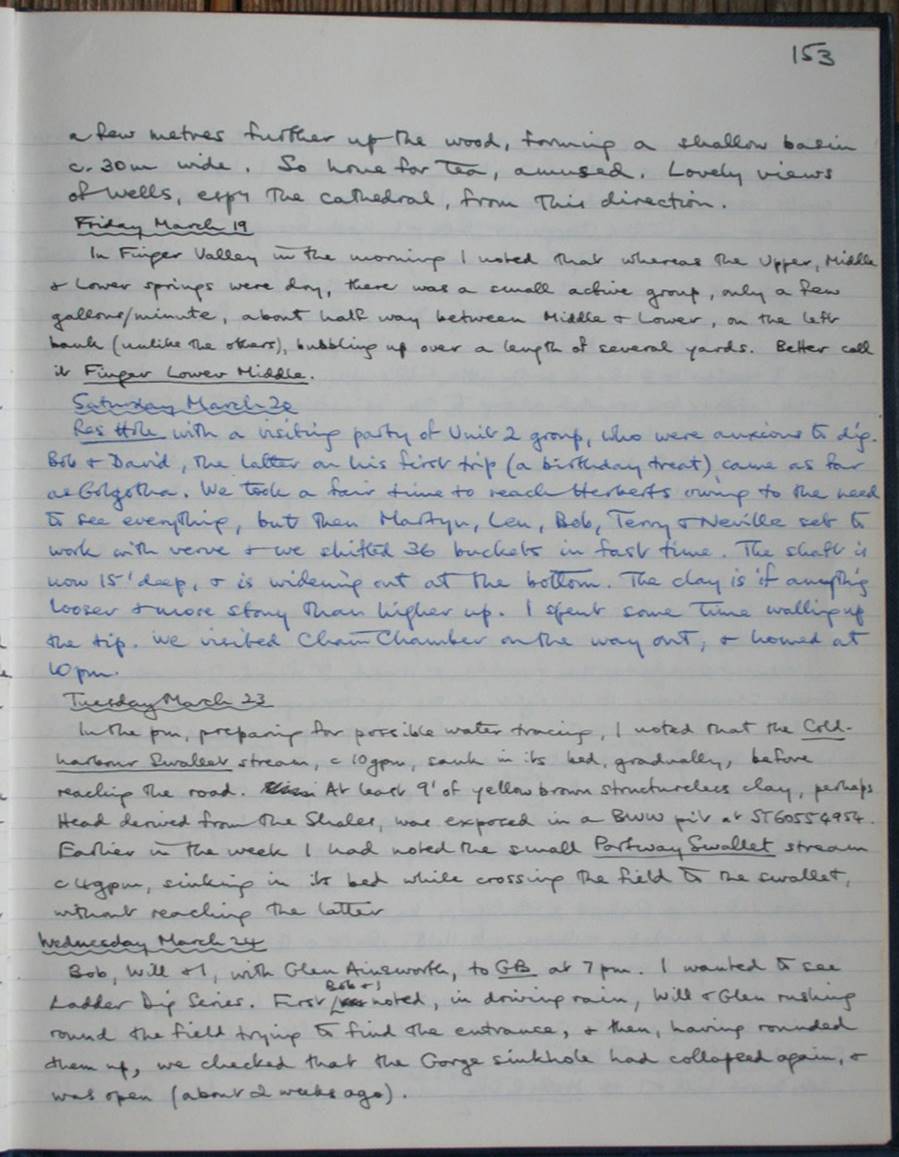 153
a few metres further up the wood, forming a shallow basin
c. 30m wide. So home for Tea, amused. Lovely views
of Wells, espy the cathedral, from this direction.
Friday March 19
In Finger Valley in the morning I noted that whereas the Upper, Middle
& Lower springs were dry, there was a small active group, only a few
gallons/minute, about half way between Middle & Lower, on the left
bank (unlike the others), bubbling up over a length of several yards. Better call
it Finger Lower Middle.
Saturday March 20
Res Hole with a visiting party of Unit 2 group, who were anxious to dig.
Bob & David, the latter on his first trip (a birthday treat) came as far
as Golgotha. We took a fair time to reach Herberts owing to the need
to see everything, but then Martyn, Len, Bob, Terry & Neville set to
work with verve & we shifted 36 buckets in fast time. The shaft is
now 15' deep, & is widening out at the bottom. The clay is if anything
looser & more stony than higher up. I spent some time walling up
the tip. We visited Chain Chamber on the way out, & homed at
10pm.
Tuesday March 23
In the pm, preparing for possible water tracing, I noted that the Cold-
harbour Swallet stream, c 10gpm, sank in its bed, gradually, before
reaching the road. At least 9' of yellow brown structureless clay, perhaps
Head derived from the Shales, was exposed in a BWW pit at ST60554954.
Earlier in the week I had noted the small Portway Swallet stream
c 4gpm, sinking in its bed while crossing the field to the swallet,
without reaching the latter
Wednesday March 24
Bob, Will & I, with Glen Ainsworth, to GB at 7pm. I wanted to see
Ladder Dig Series. First Bob & I noted, in driving rain, Will & Glen rushing
round the field trying to find the entrance, & then, having rounded
them up, we checked that the Gorge sinkhole had collapsed again, &
was open (about 2 weeks ago).